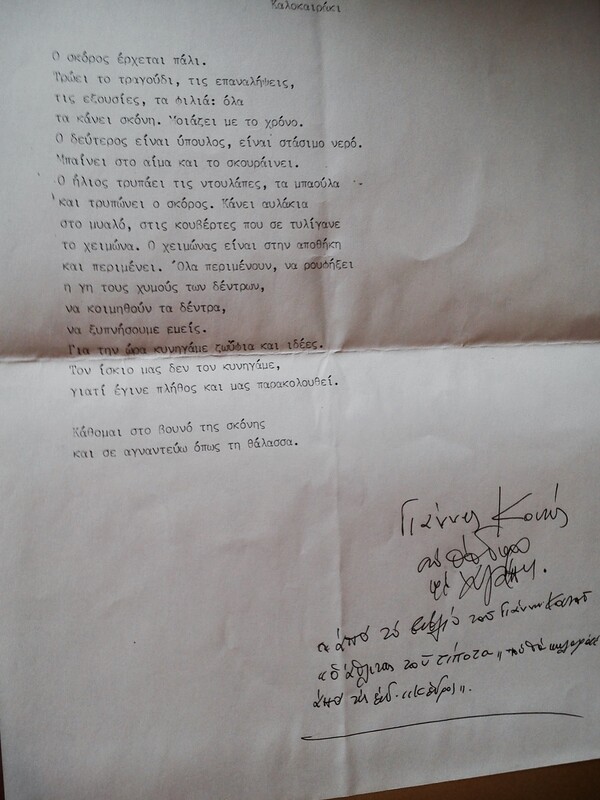 Καλοκαιράκι
Ο σκόρος έρχεται πάλι.
Τρώει το τραγούδι, τις επαναλήψεις,
τις εξουσίες, τα φιλιά: όλα
τα κάνει σκόνη. Μοιάζει με το χρόνο.
Ο δεύτερος είναι ύπουλος, είναι στάσιμο νερό.
Μπαίνει στο αίμα και το σκουραίνει.
Ο ήλιος τρυπάει τις ντουλάπες, τα μπαούλα
και τρυπώνει ο σκόρος. Κάνει αυλάκια
στο μυαλό, στις κουβέρτες που σε τυλίγανε
το χειμώνα. Ο χειμώνας είναι στην αποθήκη
και περιμένει. Όλα περιμένουν, να ρουφήξει
η γη τους χυμούς των δέντρων,
να κοιμηθούν τα δέντρα,
να ξυπνήσουμε εμείς.
Για την ώρα κυνηγάμε ζωύφια και ιδέες.
Τον ίσκιο μας δεν τον κυνηγάμε,
γιατί έγινε πλήθος και μας παρακολουθεί.
Κάθομαι στο βουνό της σκόνης
και σε αγναντεύω όπως τη θάλασσα.
Γιάννης
με αγάπη.
από το βιβλίο του Γιάννη Κοντού
ο αθλητής του τίποτα
από τις εκδ. "Κέδρος".